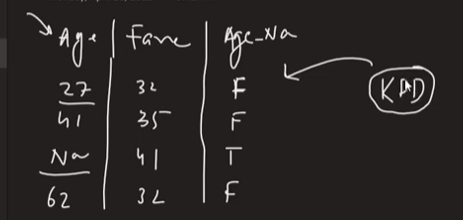 Age Fare Age_Na
27 32 F
41 35 F
Na 41 T
62 32 F